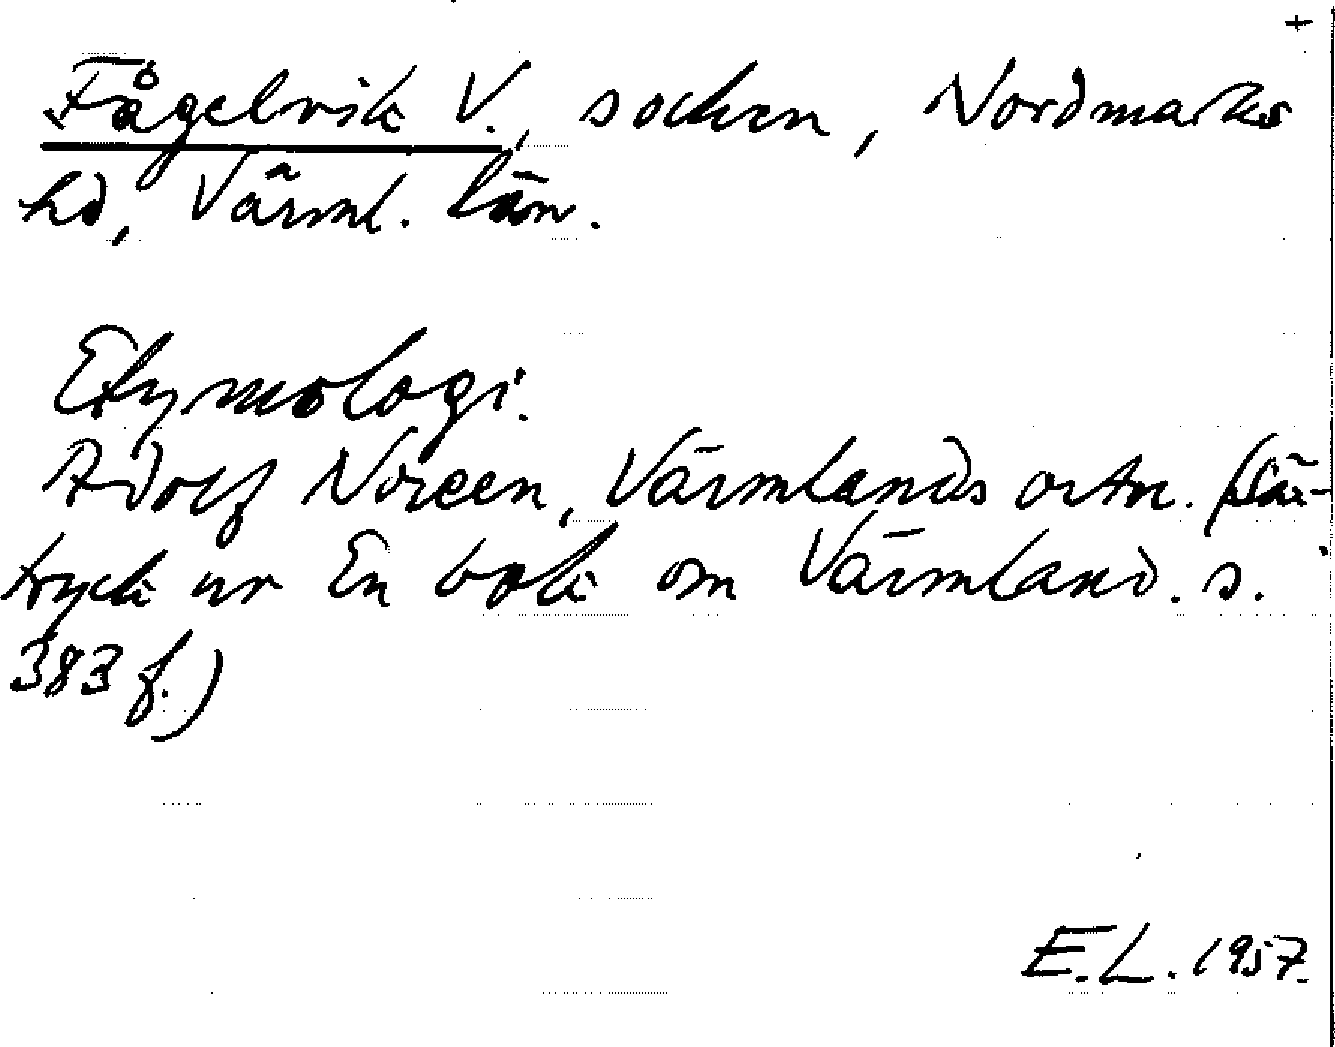 +
Fågelvik V., socken, Nordmarks
hd, Värml. län.
Etymologi.
Adolf Noreen, Värmlands ortn. (Sär-
tryck ur En bok om Värmland. s.
383 f.)
E.L. 1957.